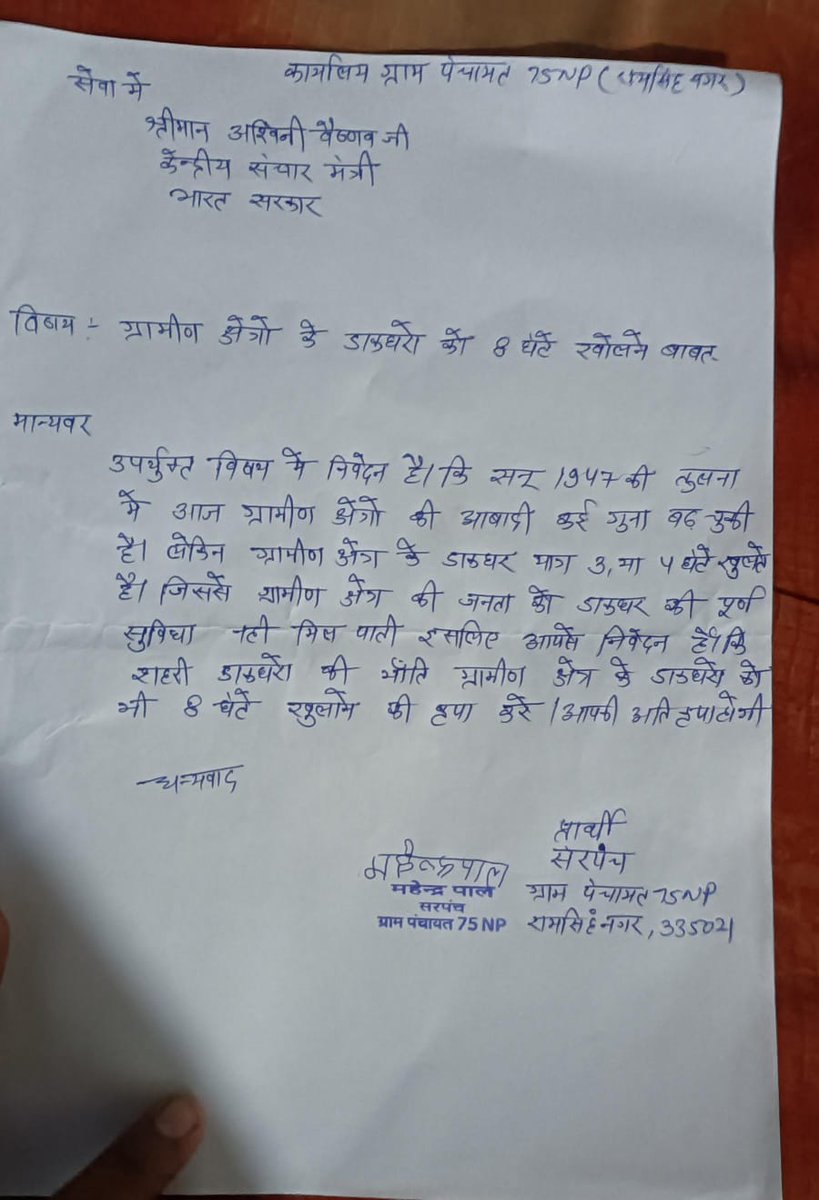 कार्यालय ग्राम पंचायत 75NP (रामसिंह नगर)
सेवा में
श्रीमान अश्विनी वैष्णव जी
केन्द्रीय संचार मंत्री
भारत सरकार
विषय :- ग्रामीण क्षेत्रो के डाकघरो को 8 घंटे खोलने बाबत
मान्यवर
उपर्युक्त विषय में निवेदन है। कि सन् 1947 की तुलना
में आज ग्रामीण क्षेत्रो की आबादी कई गुना बढ़ चुकी
है। लेकिन ग्रामीण क्षेत्र के डाकघर मात्र 3, या 4 घंटे खुलते
है। जिससे ग्रामीण क्षेत्र की जनता को डाकघर की पूर्ण
सुविधा नही मिल पाती इसलिए आपसे निवेदन है। कि
शहरी डाकघरो की भाँति ग्रामीण क्षेत्र के डाकघरो को
भी 8 घंटे खुलाने की कृपा करे। आपकी अति कृपा होगी
धन्यवाद
प्रार्थी
सरपंच
महेन्द्रपाल
महेन्द्र पाल
सरपंच
ग्राम पंचायत 75 NP
ग्राम पंचायत 75NP
रामसिंहनगर, 335021